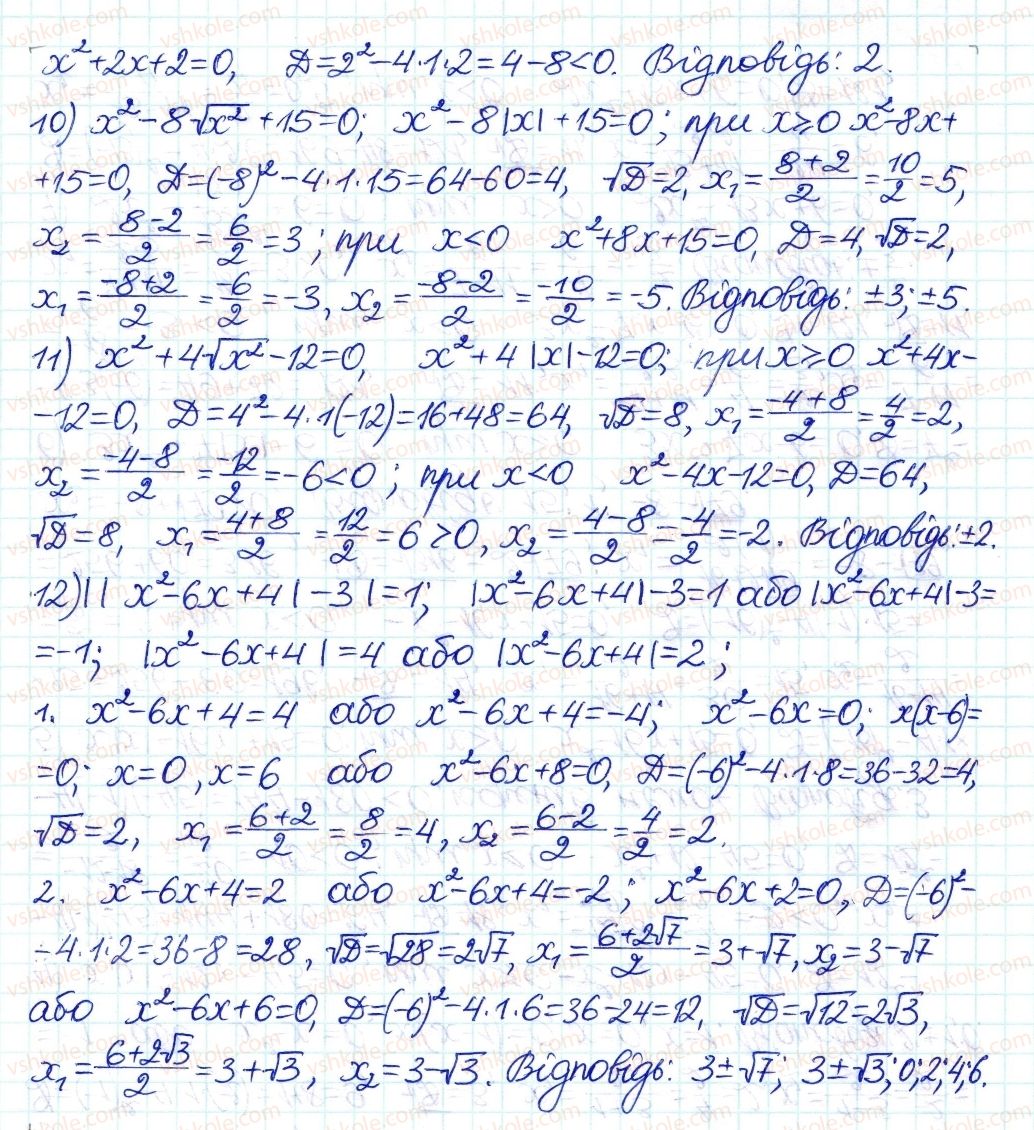 x²+2x+2=0, D=2²-4·1·2=4-8<0. Відповідь: 2.
10) x²-8√x²+15=0; x²-8|x|+15=0; при x≥0 x²-8x+
+15=0, D=(-8)²-4·1·15=64-60=4, √D=2, x₁=(8+2)/2=10/2=5,
x₂=(8-2)/2=6/2=3; при x<0 x²+8x+15=0, D=4, √D=2,
x₁=(-8+2)/2=-6/2=-3, x₂=(-8-2)/2=-10/2=-5. Відповідь: ±3; ±5.
11) x²+4√x²-12=0, x²+4|x|-12=0; при x≥0 x²+4x-
-12=0, D=4²-4·1(-12)=16+48=64, √D=8, x₁=(-4+8)/2=4/2=2,
x₂=(-4-8)/2=-12/2=-6<0; при x<0 x²-4x-12=0, D=64,
√D=8, x₁=(4+8)/2=12/2=6>0, x₂=(4-8)/2=-4/2=-2. Відповідь: ±2.
12) ||x²-6x+4|-3|=1; |x²-6x+4|-3=1 або |x²-6x+4|-3=
=-1; |x²-6x+4|=4 або |x²-6x+4|=2;
1. x²-6x+4=4 або x²-6x+4=-4; x²-6x=0; x(x-6)=
=0; x=0, x=6 або x²-6x+8=0, D=(-6)²-4·1·8=36-32=4,
√D=2, x₁=(6+2)/2=8/2=4, x₂=(6-2)/2=4/2=2.
2. x²-6x+4=2 або x²-6x+4=-2; x²-6x+2=0, D=(-6)²-
-4·1·2=36-8=28, √D=√28=2√7, x₁=(6+2√7)/2=3+√7, x₂=3-√7
або x²-6x+6=0, D=(-6)²-4·1·6=36-24=12, √D=√12=2√3,
x₁=(6+2√3)/2=3+√3, x₂=3-√3. Відповідь: 3±√7; 3±√3; 0; 2; 4; 6.